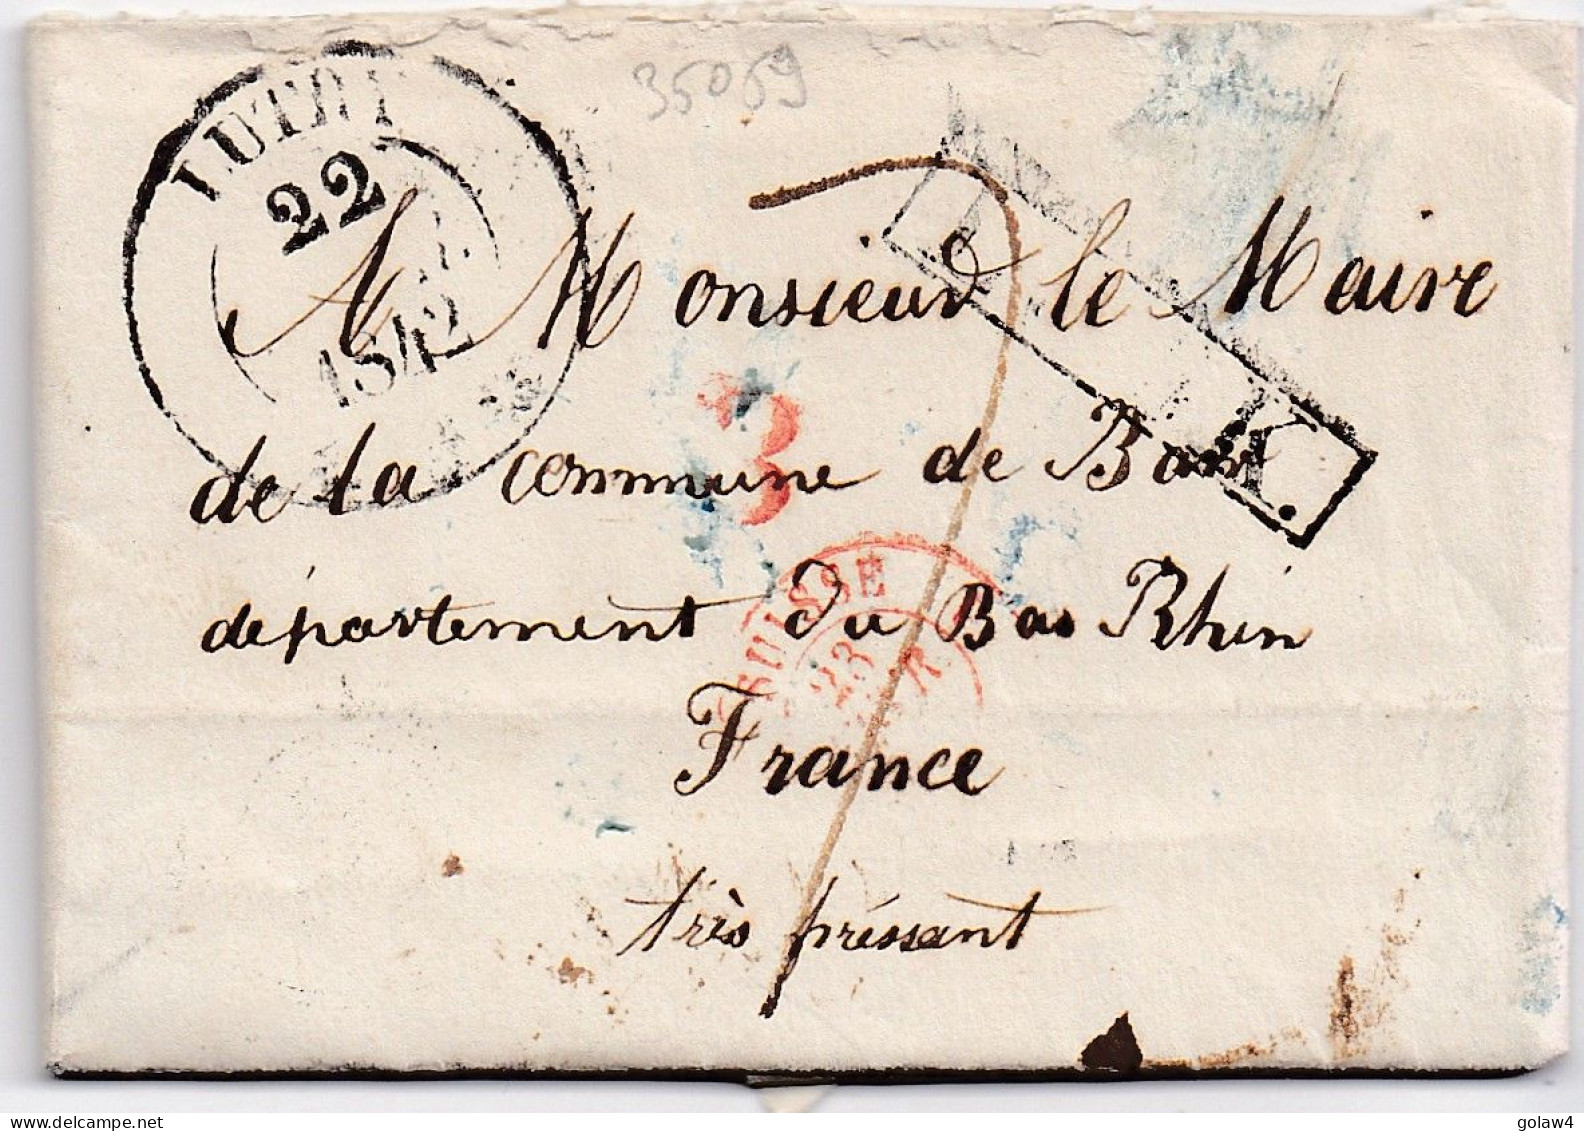 35059
22
1842
A Monsieur le Maire
L.
K.
3
de la commune de Barr
SUISSE
23
département du Bas Rhin
France
très préssant
delcampe.net
golaw4